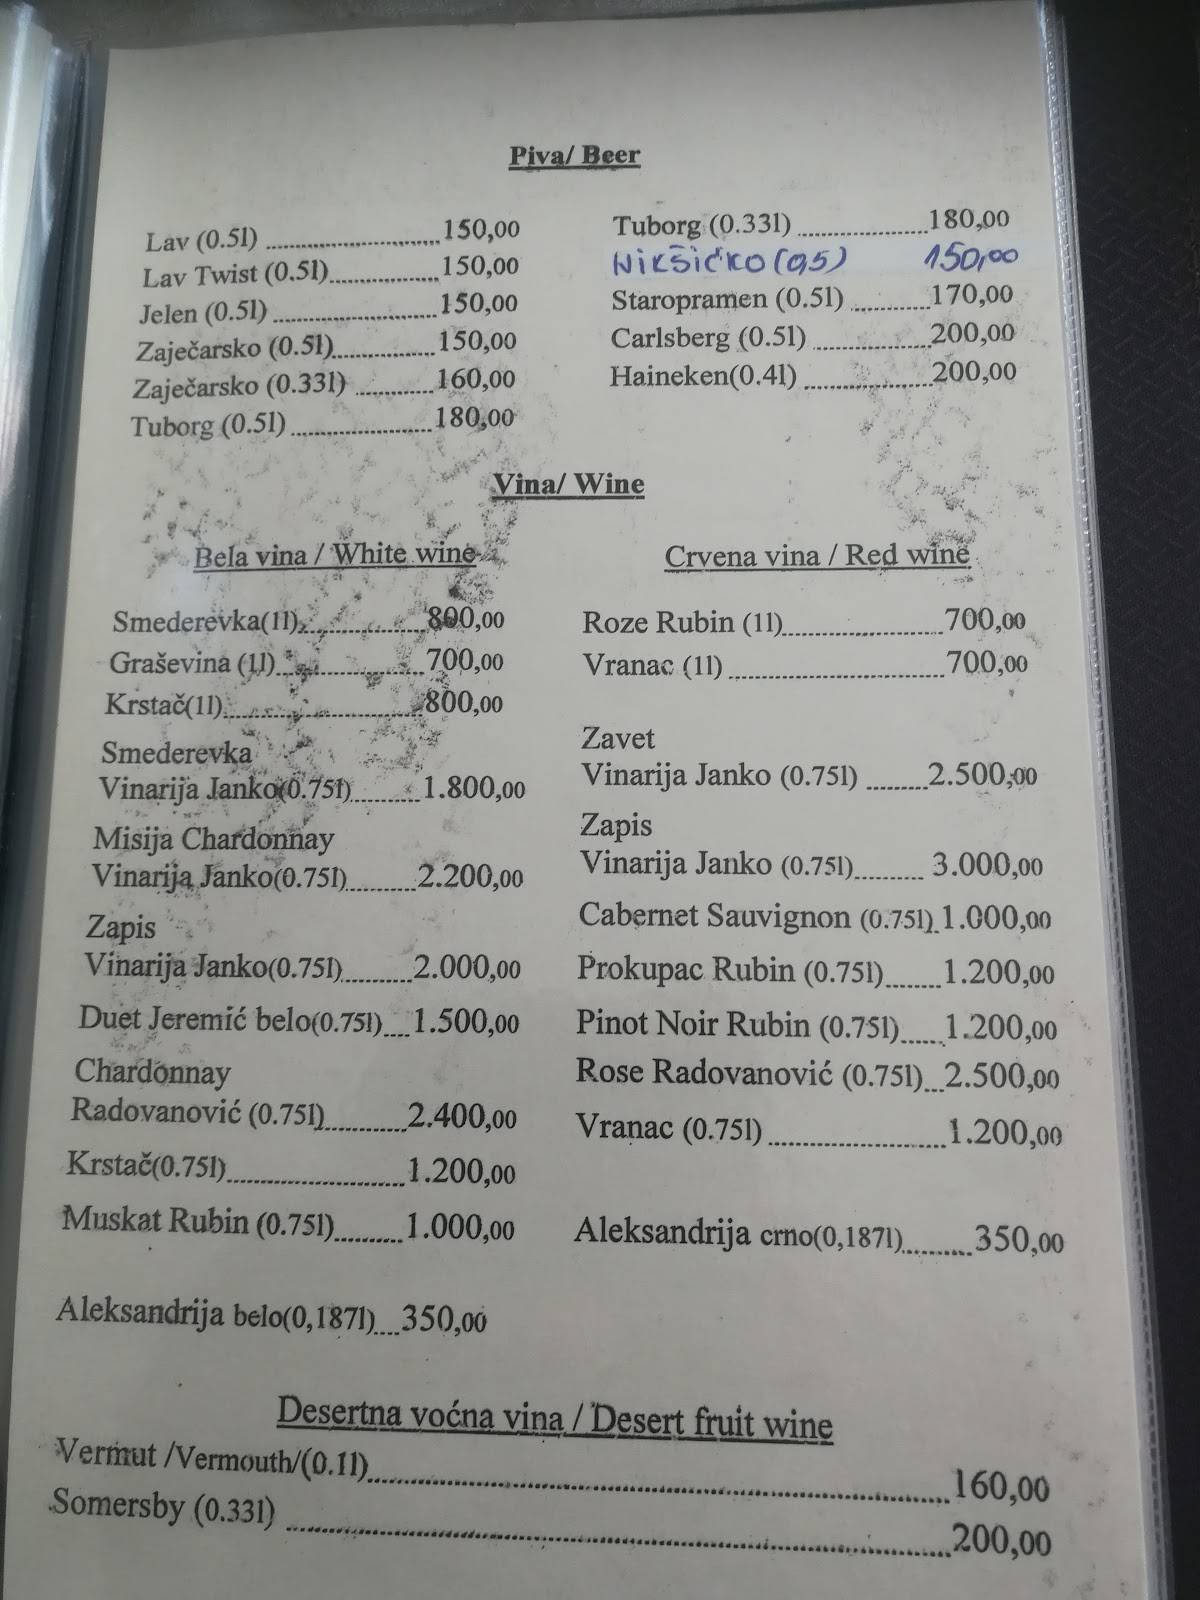 Piva/ Beer
Lav (0.5l) 150,00
Lav Twist (0.5l) 150,00
Jelen (0.5l) 150,00
Zaječarsko (0.5l) 150,00
Zaječarsko (0.33l) 160,00
Tuborg (0.5l) 180,00
Tuborg (0.33l) 180,00
Nikšićko (0,5) 150,00
Staropramen (0.5l) 170,00
Carlsberg (0.5l) 200,00
Haineken(0.4l) 200,00
Vina/ Wine
Bela vina / White wine
Smederevka(1l) 800,00
Graševina (1l) 700,00
Krstač(1l) 800,00
Smederevka
Vinarija Janko(0.75l) 1.800,00
Misija Chardonnay
Vinarija Janko(0.75l) 2.200,00
Zapis
Vinarija Janko(0.75l) 2.000,00
Duet Jeremić belo(0.75l) 1.500,00
Chardonnay
Radovanović (0.75l) 2.400,00
Krstač(0.75l) 1.200,00
Muskat Rubin (0.75l) 1.000,00
Aleksandrija belo(0,187l) 350,00
Crvena vina / Red wine
Roze Rubin (1l) 700,00
Vranac (1l) 700,00
Zavet
Vinarija Janko (0.75l) 2.500,00
Zapis
Vinarija Janko (0.75l) 3.000,00
Cabernet Sauvignon (0.75l) 1.000,00
Prokupac Rubin (0.75l) 1.200,00
Pinot Noir Rubin (0.75l) 1.200,00
Rose Radovanović (0.75l) 2.500,00
Vranac (0.75l) 1.200,00
Aleksandrija crno(0,187l) 350,00
Desertna voćna vina / Desert fruit wine
Vermut /Vermouth/(0.1l) 160,00
Somersby (0.33l) 200,00